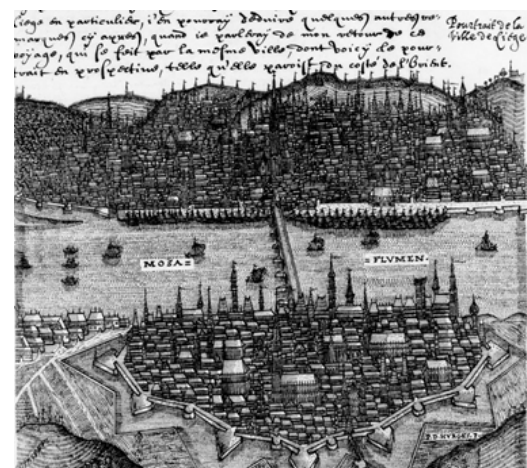 Liege en particulier, i'en pourray deduire quelques autres re-
marques cy apres, quand ie parleray de mon retour de ce
voyage, qui se fait par la mesme ville, dont voicy le pour-
trait en prospective, telle qu'elle paroist du costé de l'Orient.
Pourtrait de la
ville de Liege
MOSA=
=FLVMEN·